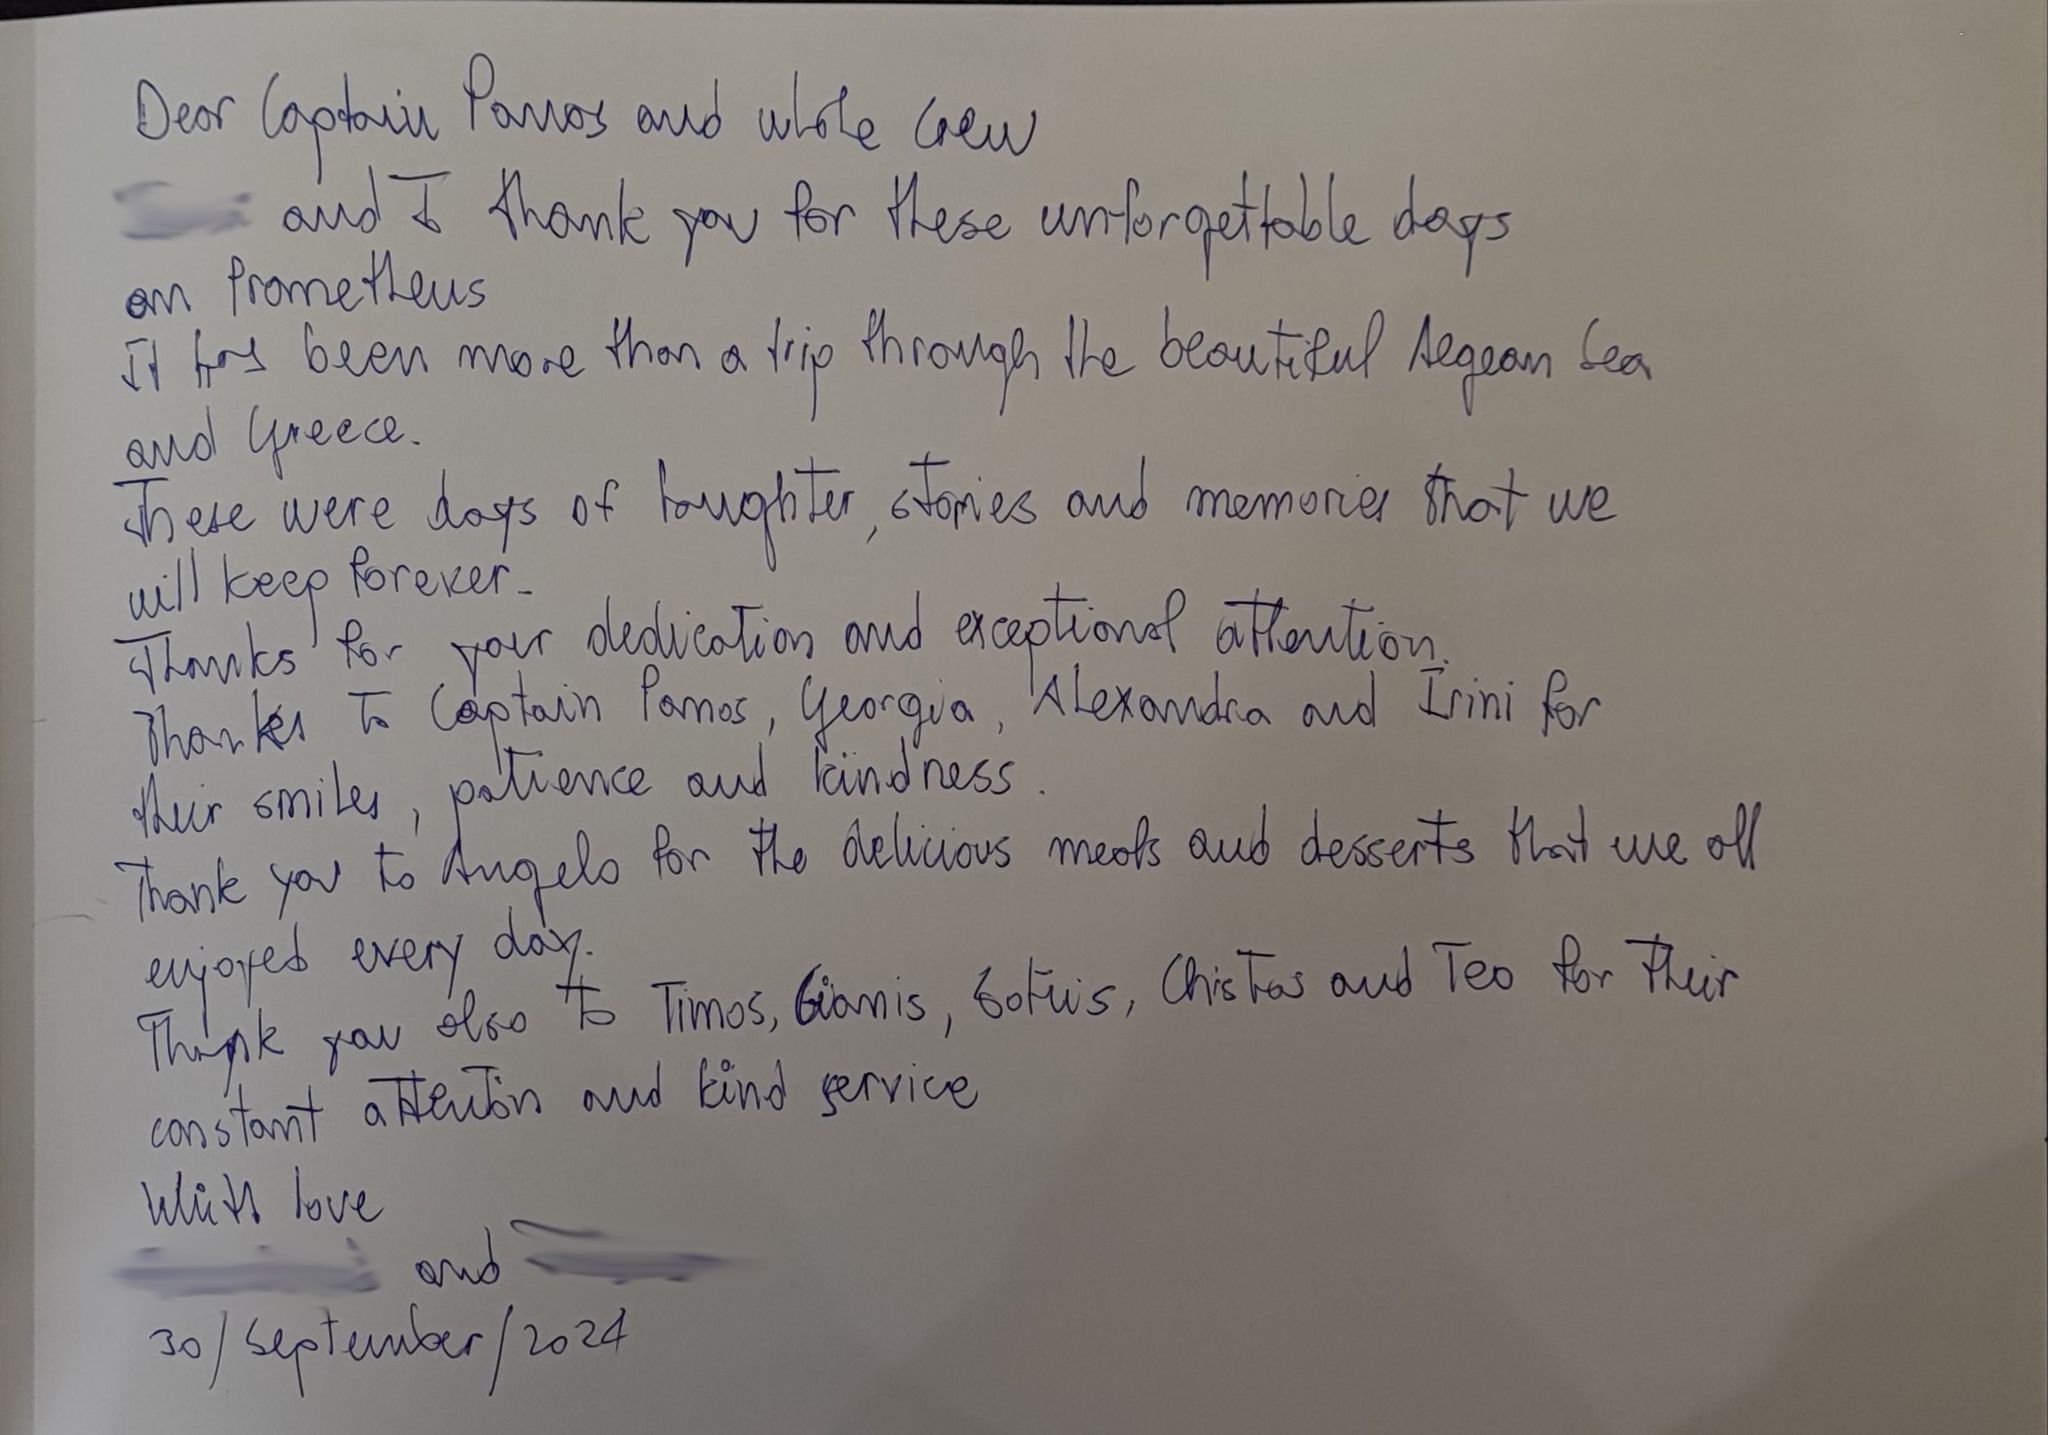 Dear Captain Panos and whole crew
and I thank you for these unforgettable days
on Prometheus
It has been more than a trip through the beautiful Aegean Sea
and Greece.
These were days of laughter, stories and memories that we
will keep forever.
Thanks for your dedication and exceptional attention.
Thanks to Captain Panos, Georgia, Alexandra and Irini for
their smiles, patience and kindness.
Thank you to Angelo for the delicious meals and desserts that we all
enjoyed every day.
Thank you also to Timos, Gianis, Sotiis, Chistos and Teo for their
constant attention and kind service
With love
and
30/September/2024